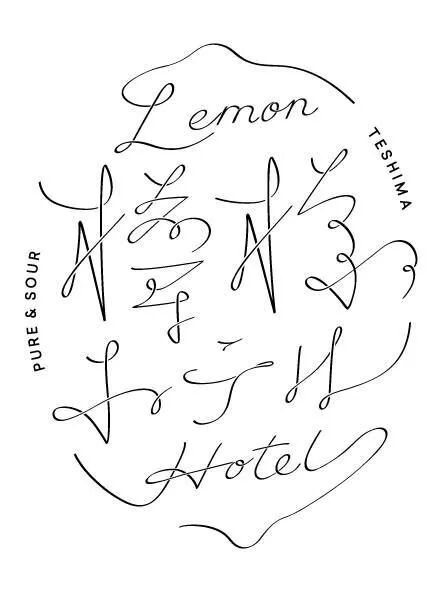 Lemon
TESHIMA
檸檬
PURE & SOUR
ホテル
Hotel